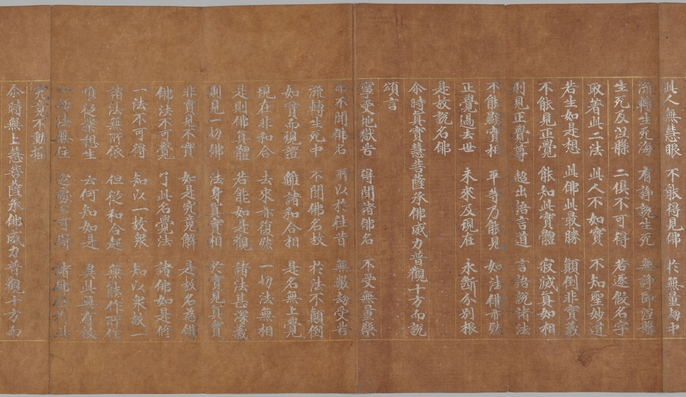 此人無慧眼 不能得見佛 於無量劫中
流轉生死海 有諍說生死 無諍即涅槃
生死及涅槃 二俱不可得 若逐假名字
取著此二法 此人不如實 不知聖妙道
若生如是想 此佛此最勝 顛倒非實義
不能見正覺 能知此實體 寂滅真如相
則見正覺尊 超出語言道 言語說諸法
不能顯實相 平等乃能見 如法佛亦然
正覺過去世 未來及現在 永斷分別根
是故說名佛
尒時真實慧菩薩承佛威力普觀十方而說
頌言
寧受地獄苦 得聞諸佛名 不受無量樂
而不聞佛名 所以於往昔 無數劫受苦
流轉生死中 不聞佛名故 於法不顛倒
如實而現證 離諸和合相 是名無上覺
現在非和合 去來亦復然 一切法無相
是則佛真體 若能如是觀 諸法甚深義
則見一切佛 法身真實相 於實見真實
非實見不實 如是究竟解 是故名為佛
佛法不可覺 了此名覺法 諸佛如是修
一法不可得 知以一故眾 知以眾故一
諸法無所依 但從和合起 無能作所作
唯從業想生 云何知如是 異此無有故
一切法無住 定處不可得 諸佛住於此
究竟不動搖
尒時無上慧菩薩承佛威力普觀十方而